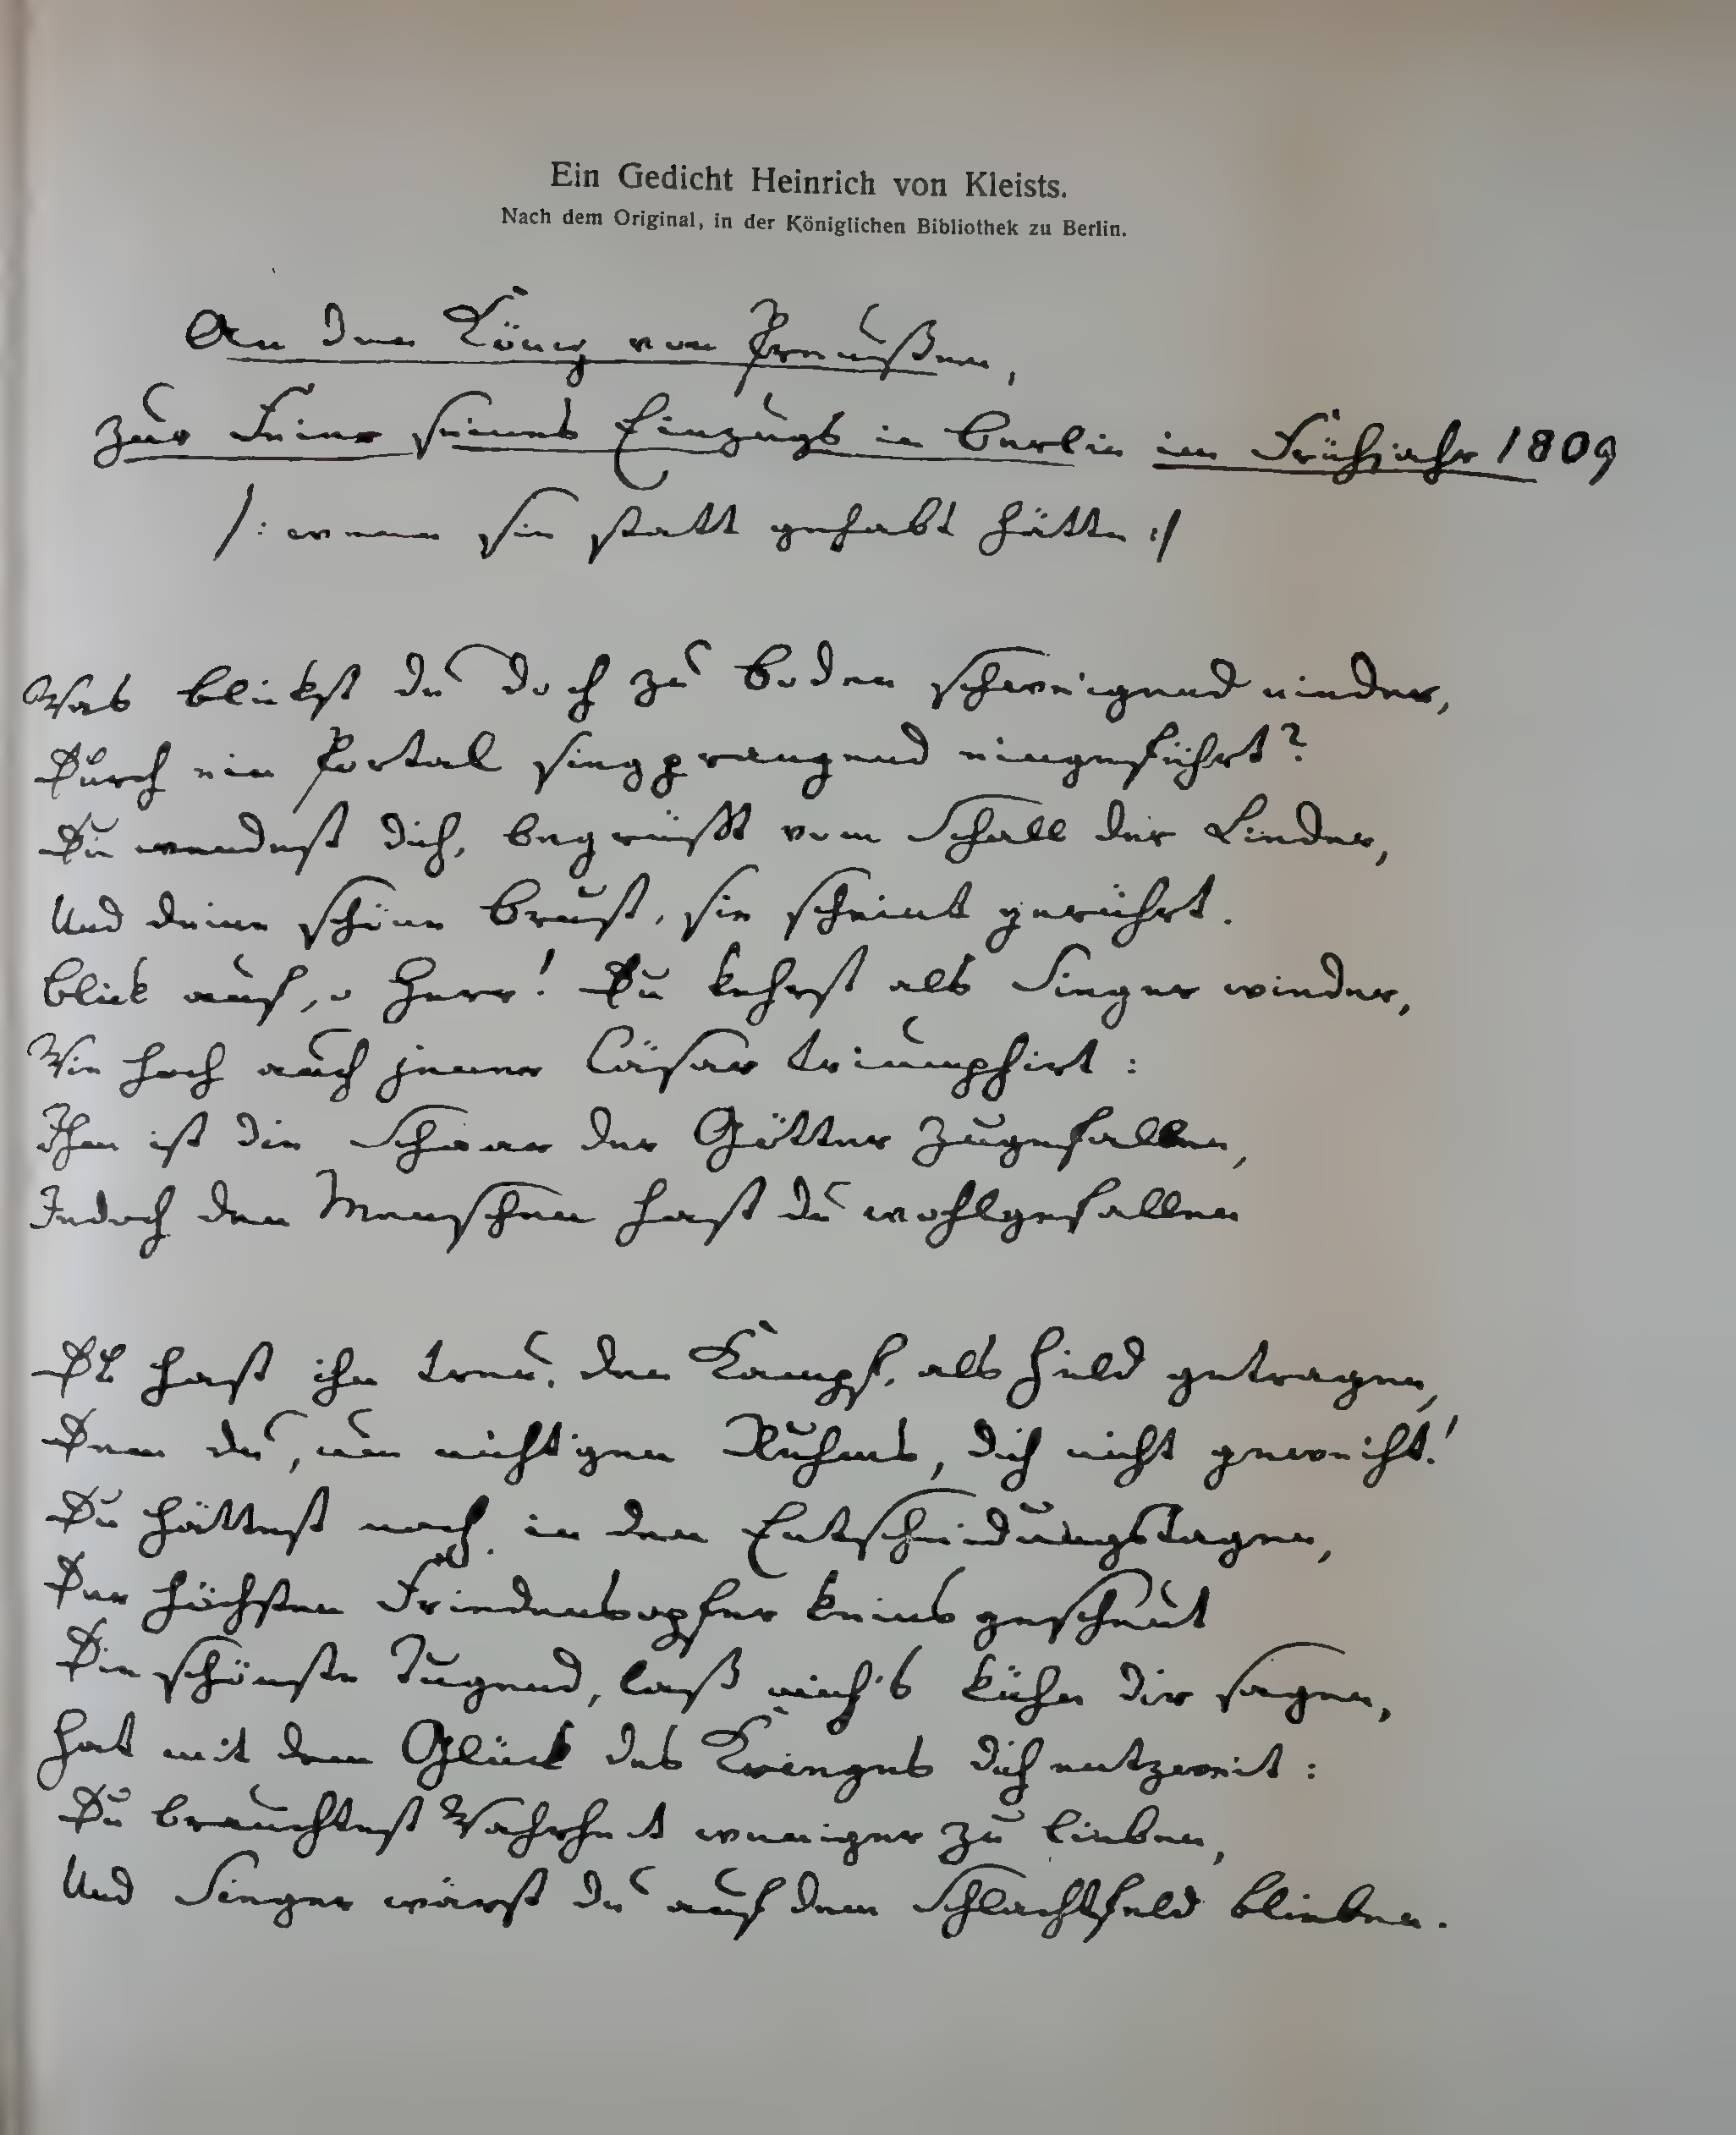 Ein Gedicht Heinrich von Kleists.
Nach dem Original, in der Königlichen Bibliothek zu Berlin.
An den König von Preußen,
zur Feier seines Einzugs in Berlin im Frühjahr 1809
/: wenn sie statt gehabt hätte :/
Was blickst du doch zu Boden schweigend nieder,
Durch ein Portal siegprangend eingeführt?
Du wendest dich, begrüßt vom Schall der Lieder,
Und deine schöne Brust, sie scheint gerührt.
Blick auf, o Herr! Du kehrst als Sieger wieder,
Wie hoch auch jener Cäsar triumphirt:
Ihm ist die Schaar der Götter zugefallen,
Jedoch den Menschen hast du wohlgefallen
Du hast ihn treu, den Kampf, als Held getragen,
Dem du, um nichtgen Ruhms, dich nicht geweiht!
Du hättest noch, in den Entscheidungstagen,
Der höchsten Friedensopfer keins gescheut
Die schönste Tugend, laß mich's kühn dir sagen,
Hat mit dem Glück des Krieges dich entzweit:
Du brauchtest Wahrheit weniger zu lieben,
Und Sieger wärst du auf dem Schlachtfeld blieben.